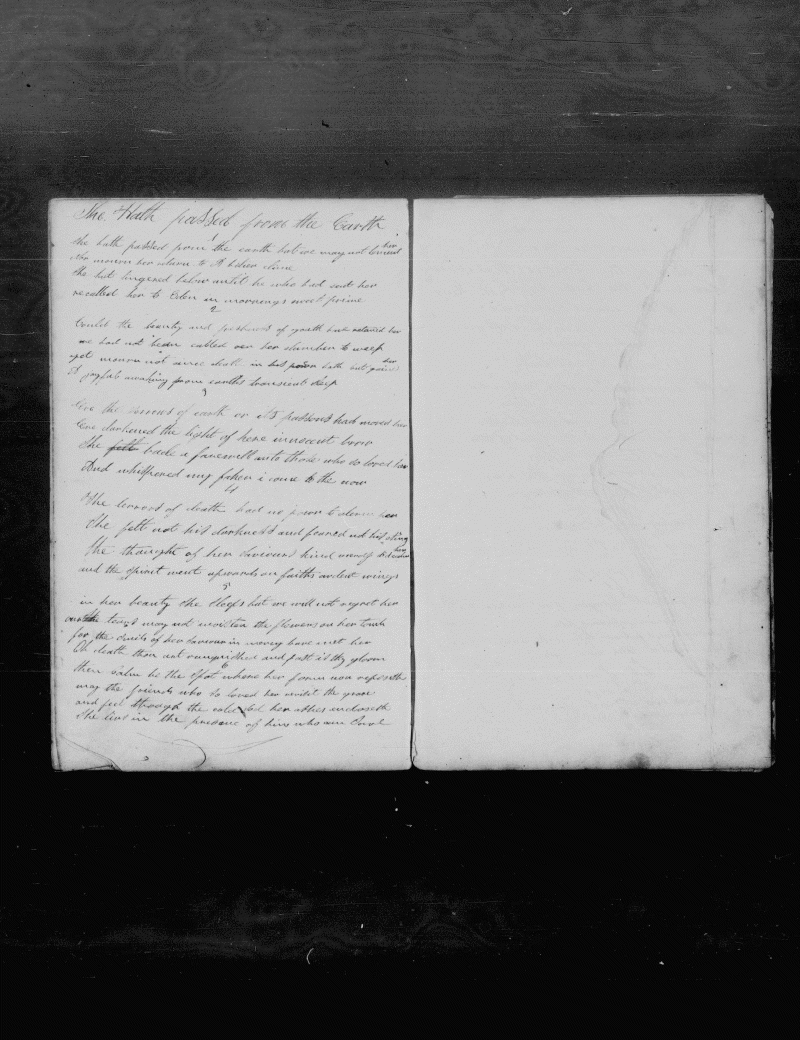 She Hath passed from the Earth
1
She hath passed from the earth but we may not lament her
Nor mourn her return to A better clime
She but lingered below until he who had sent her
recalled her to Eden in mornings sweet prime
2
Could the beauty and freshness of youth have retained her
we had not been called oer her slumber to weep
yet mourn not since death in his power hath but gained her
A joyfull awaking from earths transcient sleep
3
Ere the sorrows of earth or its passions had moved her
Ere darkened the light of here innocent brow
She felt bade a farewell unto those who so loved her
And whispered my father i come to the now
4
The terrors of death had no power to alarm her
She felt not his darkness and feared not his sting
the thaught of her saviours
and the spirit went upwards on faiths ardent wings
5
in her beauty she sleeps but we will not regret her
our tears may not moisten the flowers on her tomb
for the smile of her saviour in mercy have met her
Oh death thou art vanquished and past is thy gloom
6
then calm be the spot where her form now reposeth
may the friends who so loved her visit the grave
and feel through the cold sod her ashes encloseth
She lives in the presence of him who can